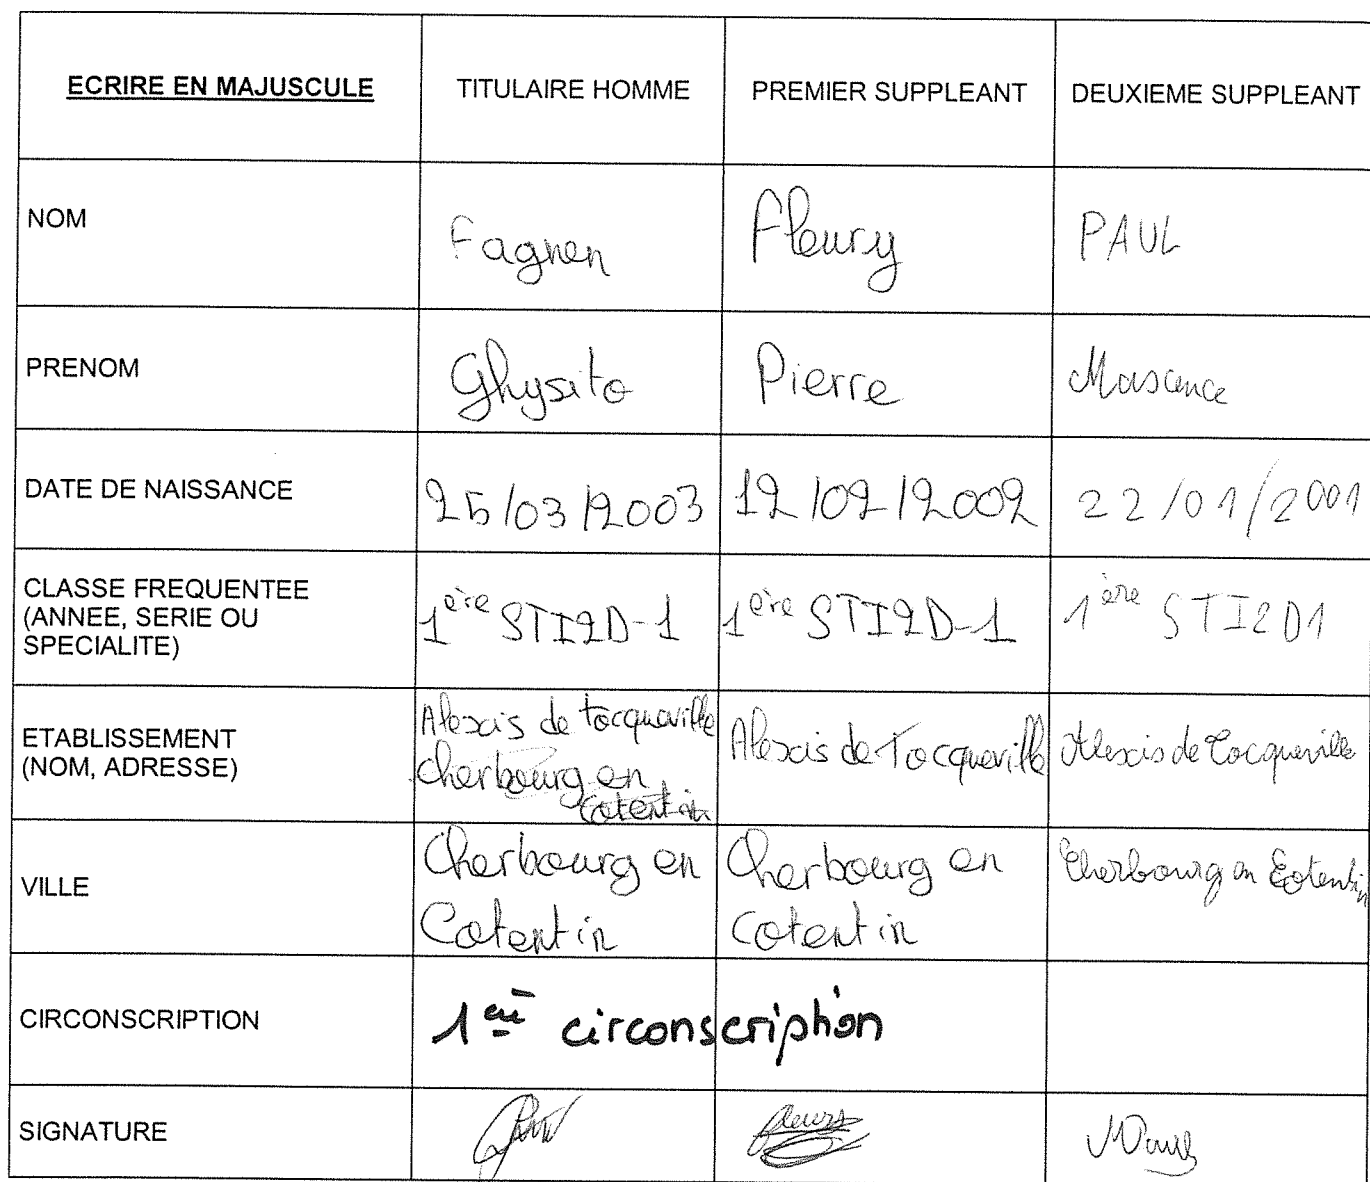 ECRIRE EN MAJUSCULE TITULAIRE HOMME PREMIER SUPPLEANT DEUXIEME SUPPLEANT
NOM Fagnen Fleury PAUL
PRENOM Ghysito Pierre Maxence
DATE DE NAISSANCE 25/03/2003 12/02/2002 22/01/2001
CLASSE FREQUENTEE
(ANNEE, SERIE OU
SPECIALITE)
1ère STI2D-1 1ère STI2D-1 1ère STI2D1
ETABLISSEMENT
(NOM, ADRESSE)
Alexis de tocqueville
cherbourg en
cotentin
Alexis de Tocqueville
Alexis de Tocqueville
VILLE
Cherbourg en
Cotentin
Cherbourg en
cotentin
Cherbourg en Cotentin
CIRCONSCRIPTION 1ère circonscription
SIGNATURE